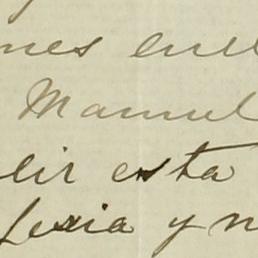 nes en el
Manuel
lir esta
lesia y n